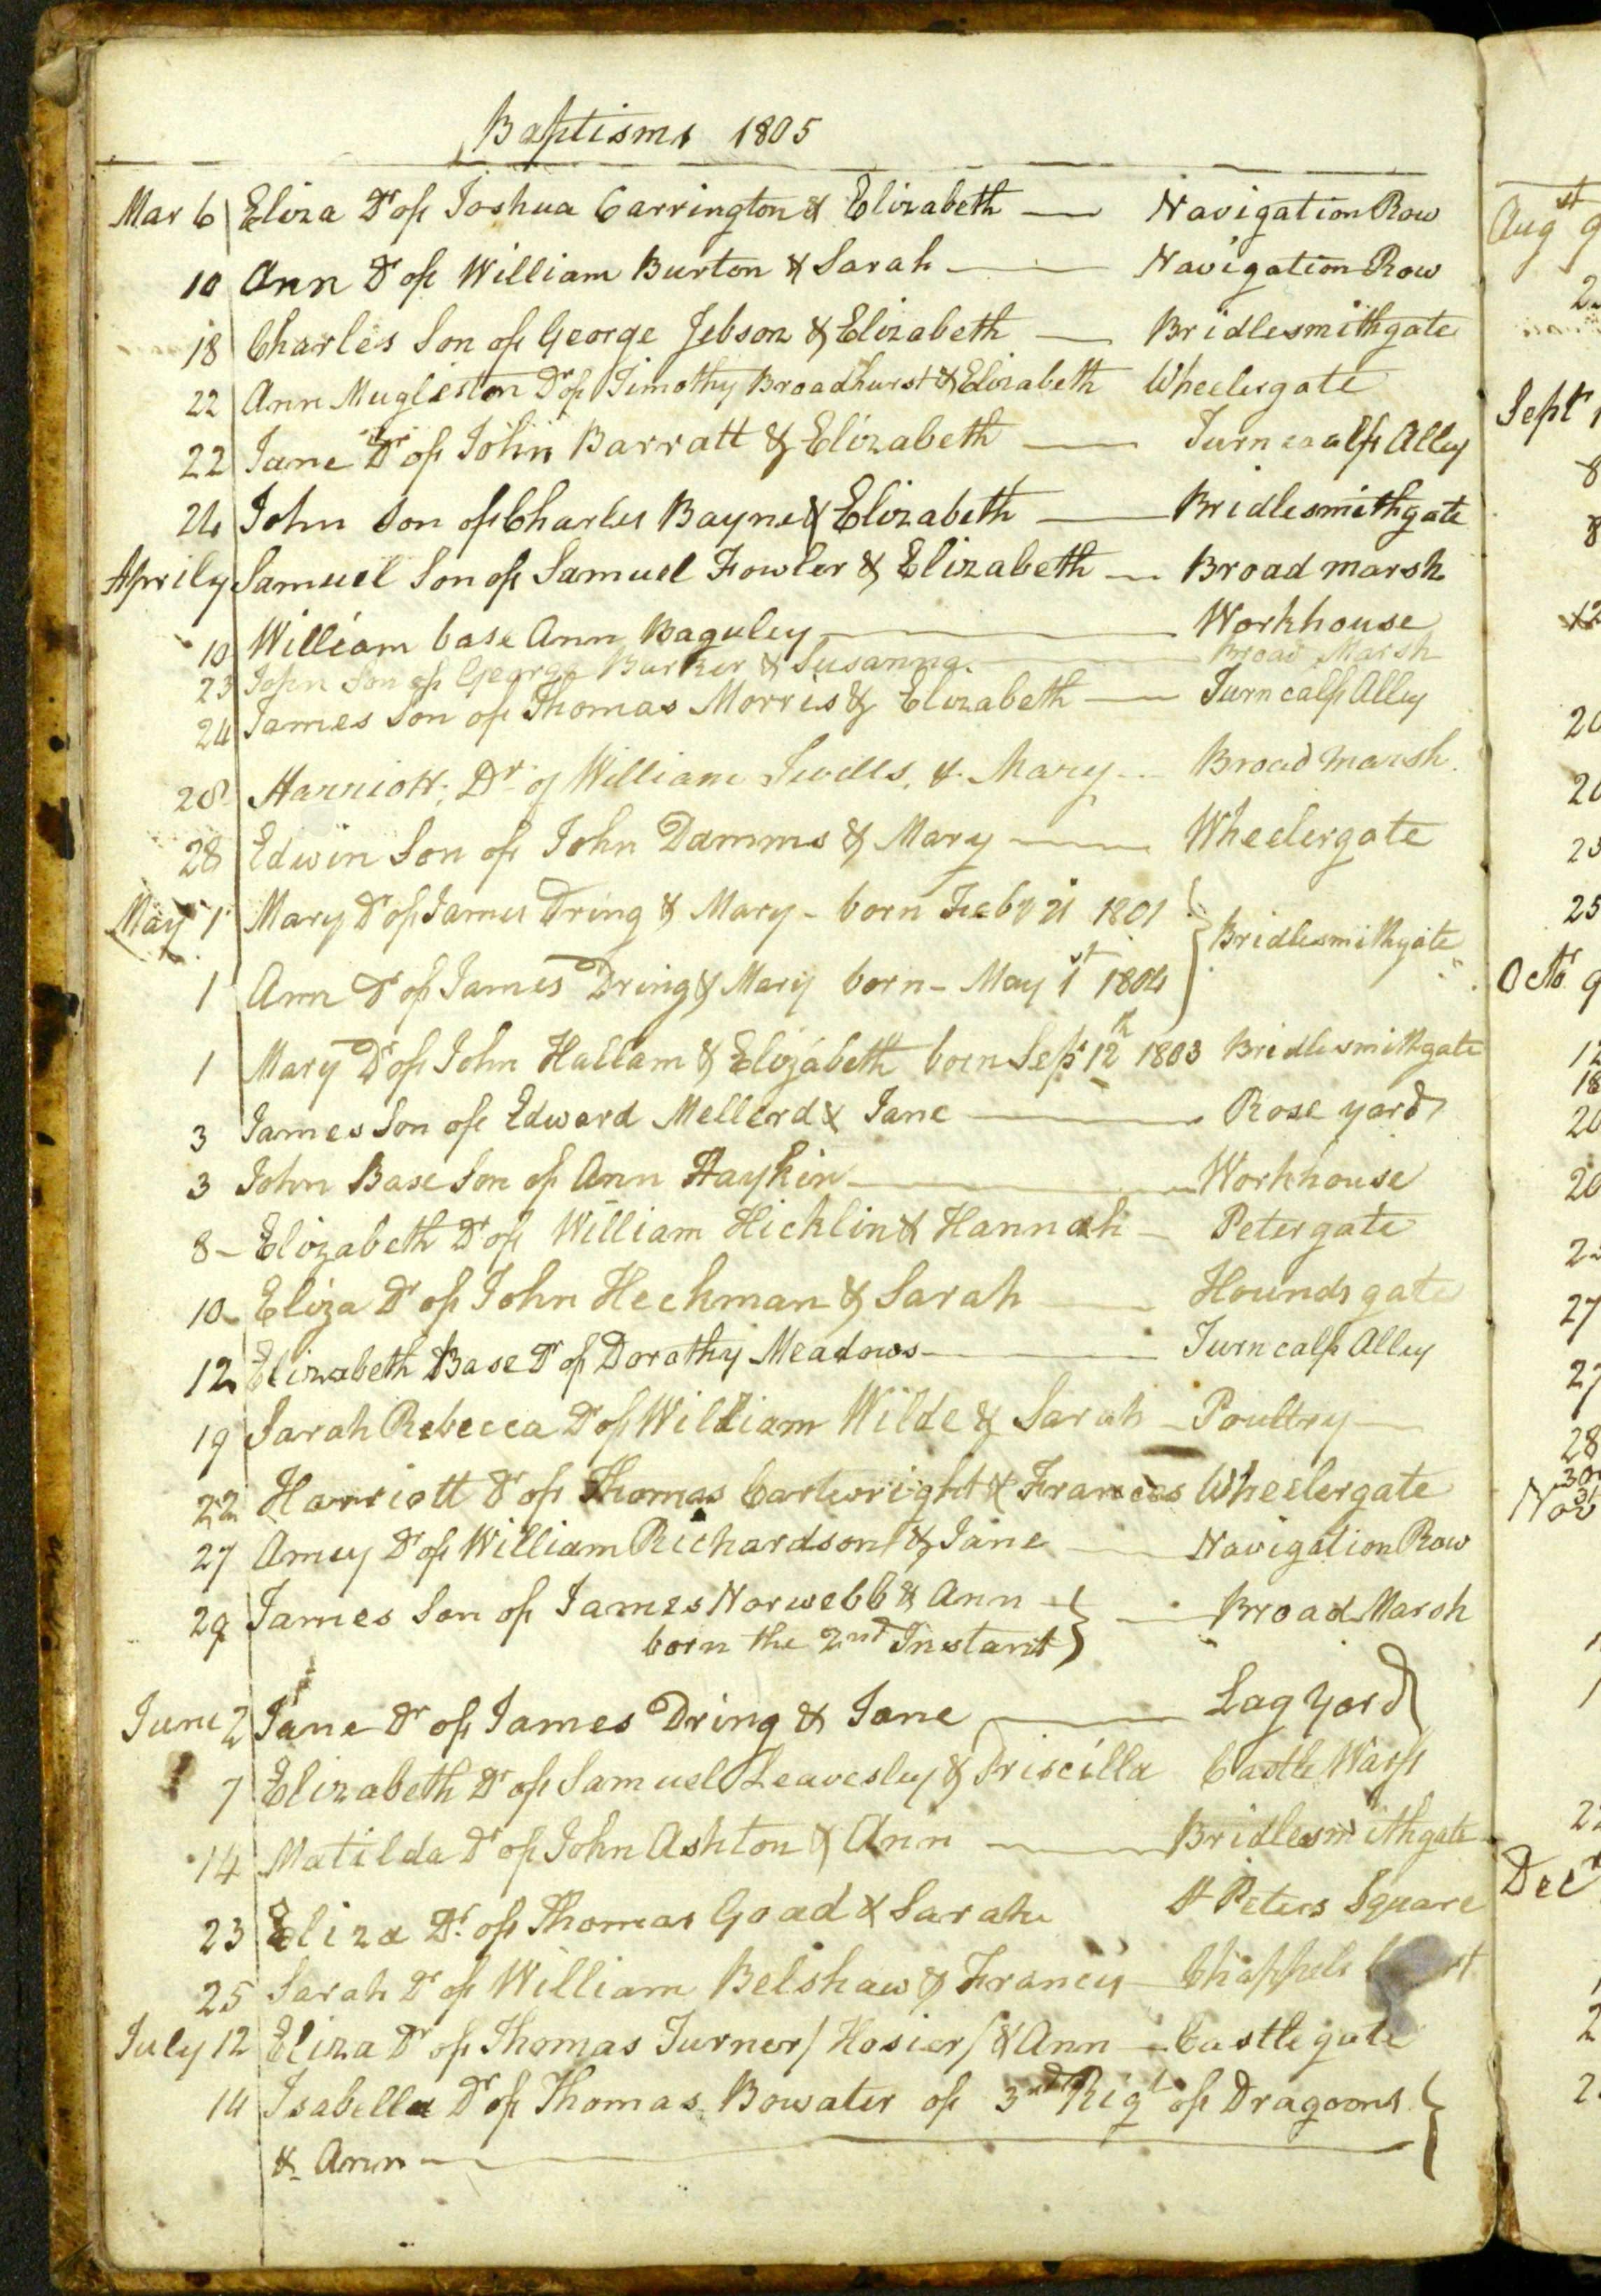 Baptisms 1805
Mar 6 Eliza Dr of Joshua Carrington & Elizabeth — Navigation Row
10 Ann Dr of William Burton & Sarah — Navigation Row
18 Charles Son of George Jebson & Elizabeth — Bridlesmithgate
22 Ann Mugleston Dr of Timothy Broadhurst & Elizabeth Wheelergate
22 Jane Dr of John Barratt & Elizabeth — Turncalf Alley
24 John Son of Charles Bayne & Elizabeth — Bridlesmithgate
April Samuel Son of Samuel Fowler & Elizabeth — Broad marsh
10 William base Ann Baguley — Workhouse
23 John Son of George Barker & Susanna — Broad Marsh
24 James Son of Thomas Morris & Elizabeth — Turncalf Alley
28 Harriott Dr of William & Mary — Broad marsh
28 Edwin Son of John Damms & Mary — Wheelergate
May 1 Mary Dr of James Dring & Mary - born Feby 21 1801
Bridlesmithgate
1 Ann Dr of James Dring & Mary born - May 1st 1804
1 Mary Dr of John Hallam & Elizabeth born Sepr 12th 1803 Bridlesmithgate
3 James Son of Edward Mellerd & Jane — Rose yard
3 John Base Son of Ann — Workhouse
8 - Elizabeth Dr of William Hicklin & Hannah - Petergate
10 - Eliza Dr of John Heckman & Sarah — Houndsgate
12 Elizabeth Base Dr of Dorothy Meadows — Turncalf Alley
19 Sarah Rebecca Dr of William Wilde & Sarah - Poultry —
22 Harriott Dr of Thomas Cartwright & Frances Wheelergate
27 Amey Dr of William Richardson & Jane — Navigation Row
29 James Son of James Norwebb & Ann — Broad Marsh
born the 2nd Instant
June 2 Jane Dr of James Dring & Jane — Lag Yard
7 Elizabeth Dr of Samuel Leavesley & Priscilla Castle Warf
14 Matilda Dr of John Ashton & Ann — Bridlesmithgate
23 Eliza Dr. of Thomas Goad & Sarah St Peters Square
25 Sarah Dr of William Belshaw & Francis — Chappels
July 12 Eliza Dr of Thomas Turner / Hosier / & Ann — Castle gate
14 Isabella Dr of Thomas Bowater of 3rd Rigt of Dragoons
& Ann —
Augst 9
Septr
8
8
12
20
25
25
Octr 9
12
18
20
20
27
27
28
30
Novr
Decr